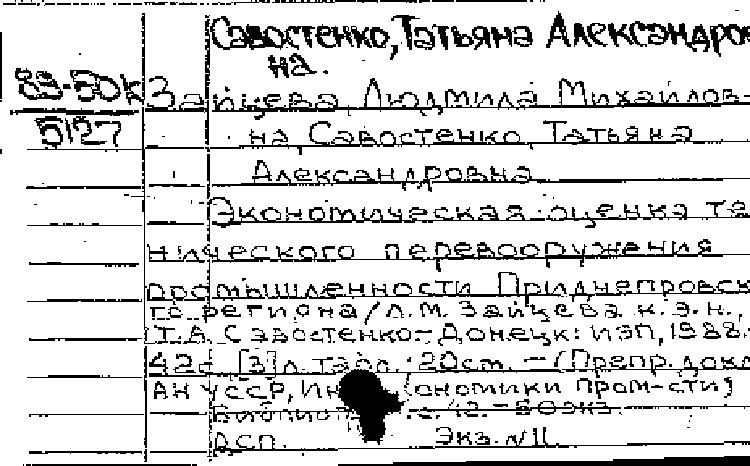 Савостенко, Татьяна Александров
на.
89-50к
5127
Зайцева, Людмила Михайлов-
на, Савостенко, Татьяна
Александровна
Экономическая оценка те
нического перевооружения
промышленности Приднепровск
го региона/Л.М. Зайцева к.э.н.,
Т.А. Савостенко.- Донецк: ИЭП, 1988.-
42с. [3]л. табл.: 20см. - (Препр. докл
АН УССР, Ин ономики пром-сти)
с. 42. - 50экз.
ДСП. Экз. N11.